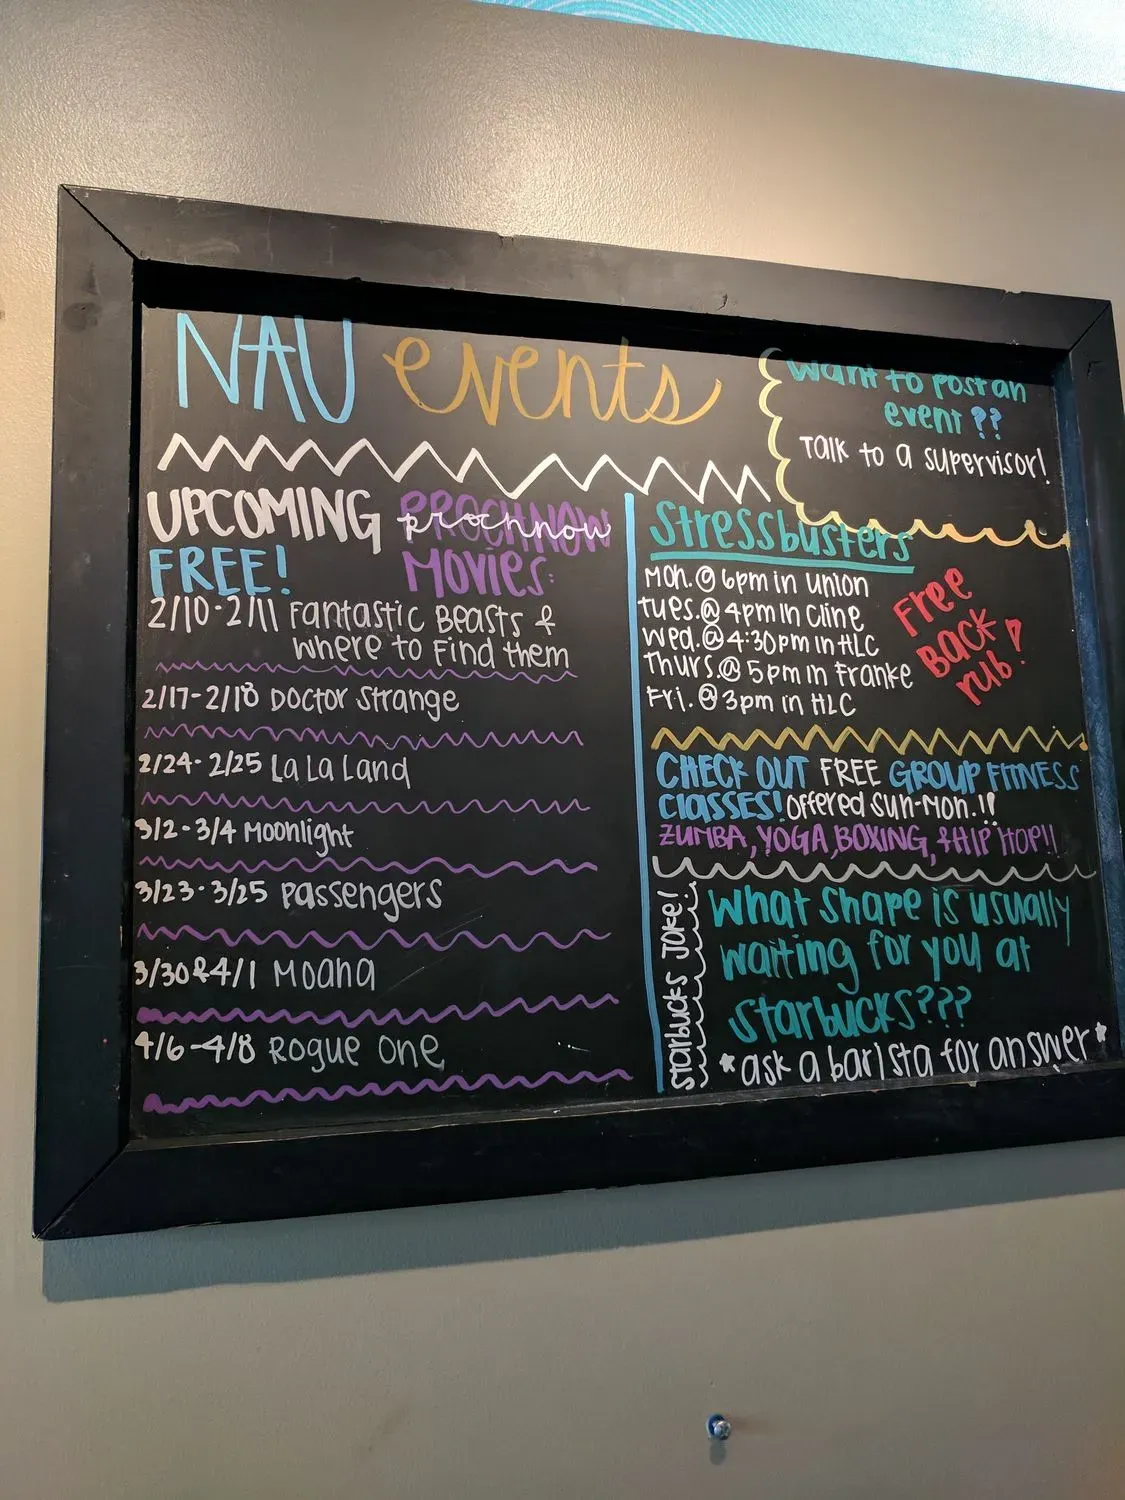 NAU events
Want to post an
event??
Talk to a supervisor!
UPCOMING PROCHNOW
prochnow
FREE! MOVIES:
2/10-2/11 Fantastic Beasts &
where to Find them
2/17-2/18 Doctor Strange
2/24-2/25 La La Land
3/2-3/4 Moonlight
3/23-3/25 Passengers
3/30&4/1 Moana
4/6-4/8 Rogue One
Stressbusters
Mon.@ 6pm in Union
Tues.@ 4pm in Cline
Wed.@ 4:30pm in HLC
Thurs.@ 5pm in Franke
Fri.@ 3pm in HLC
Free
Back
rub!
CHECK OUT FREE GROUP FITNESS
CLASSES! Offered Sun-Mon.!!
ZUMBA, YOGA, BOXING, & HIP HOP!!
Starbucks Joke!
What shape is usually
waiting for you at
Starbucks???
*ask a barista for answer*